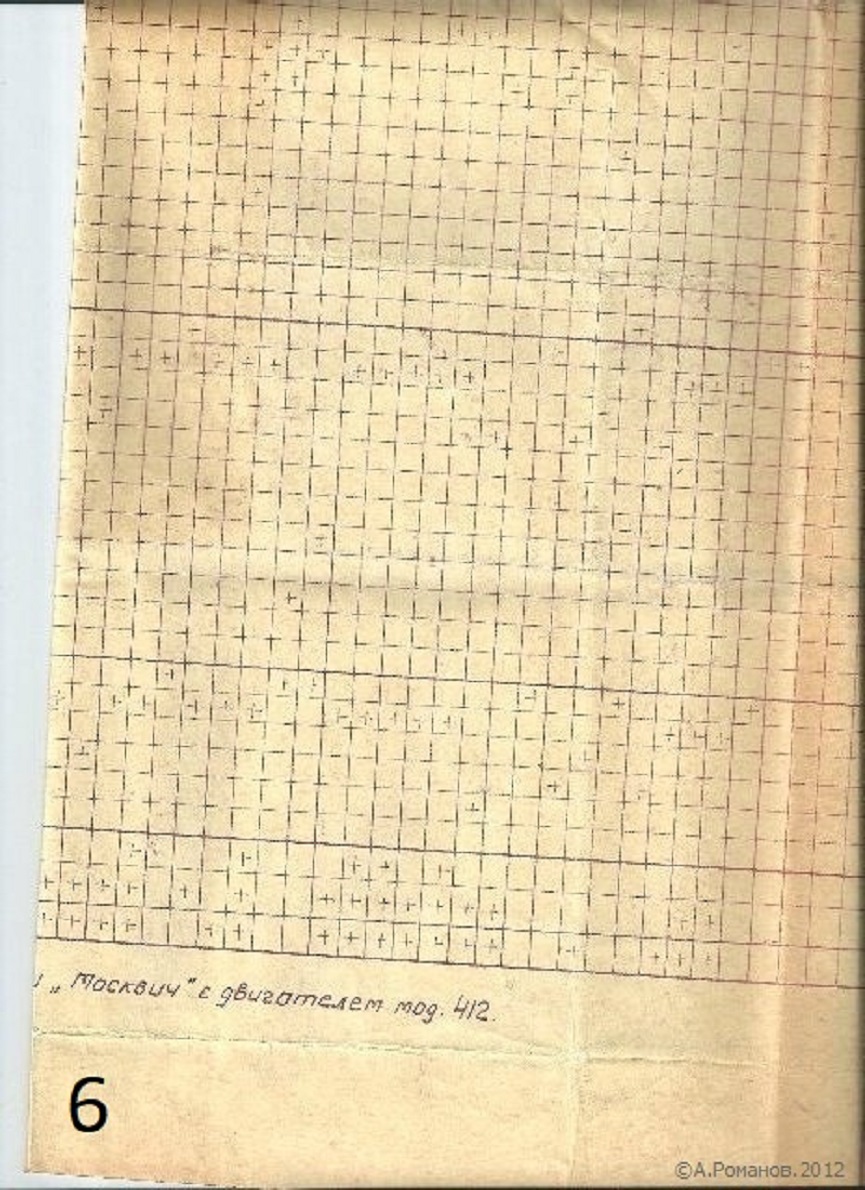 „Москвич" с двигателем мод. 412.
6
©А.Романов.2012